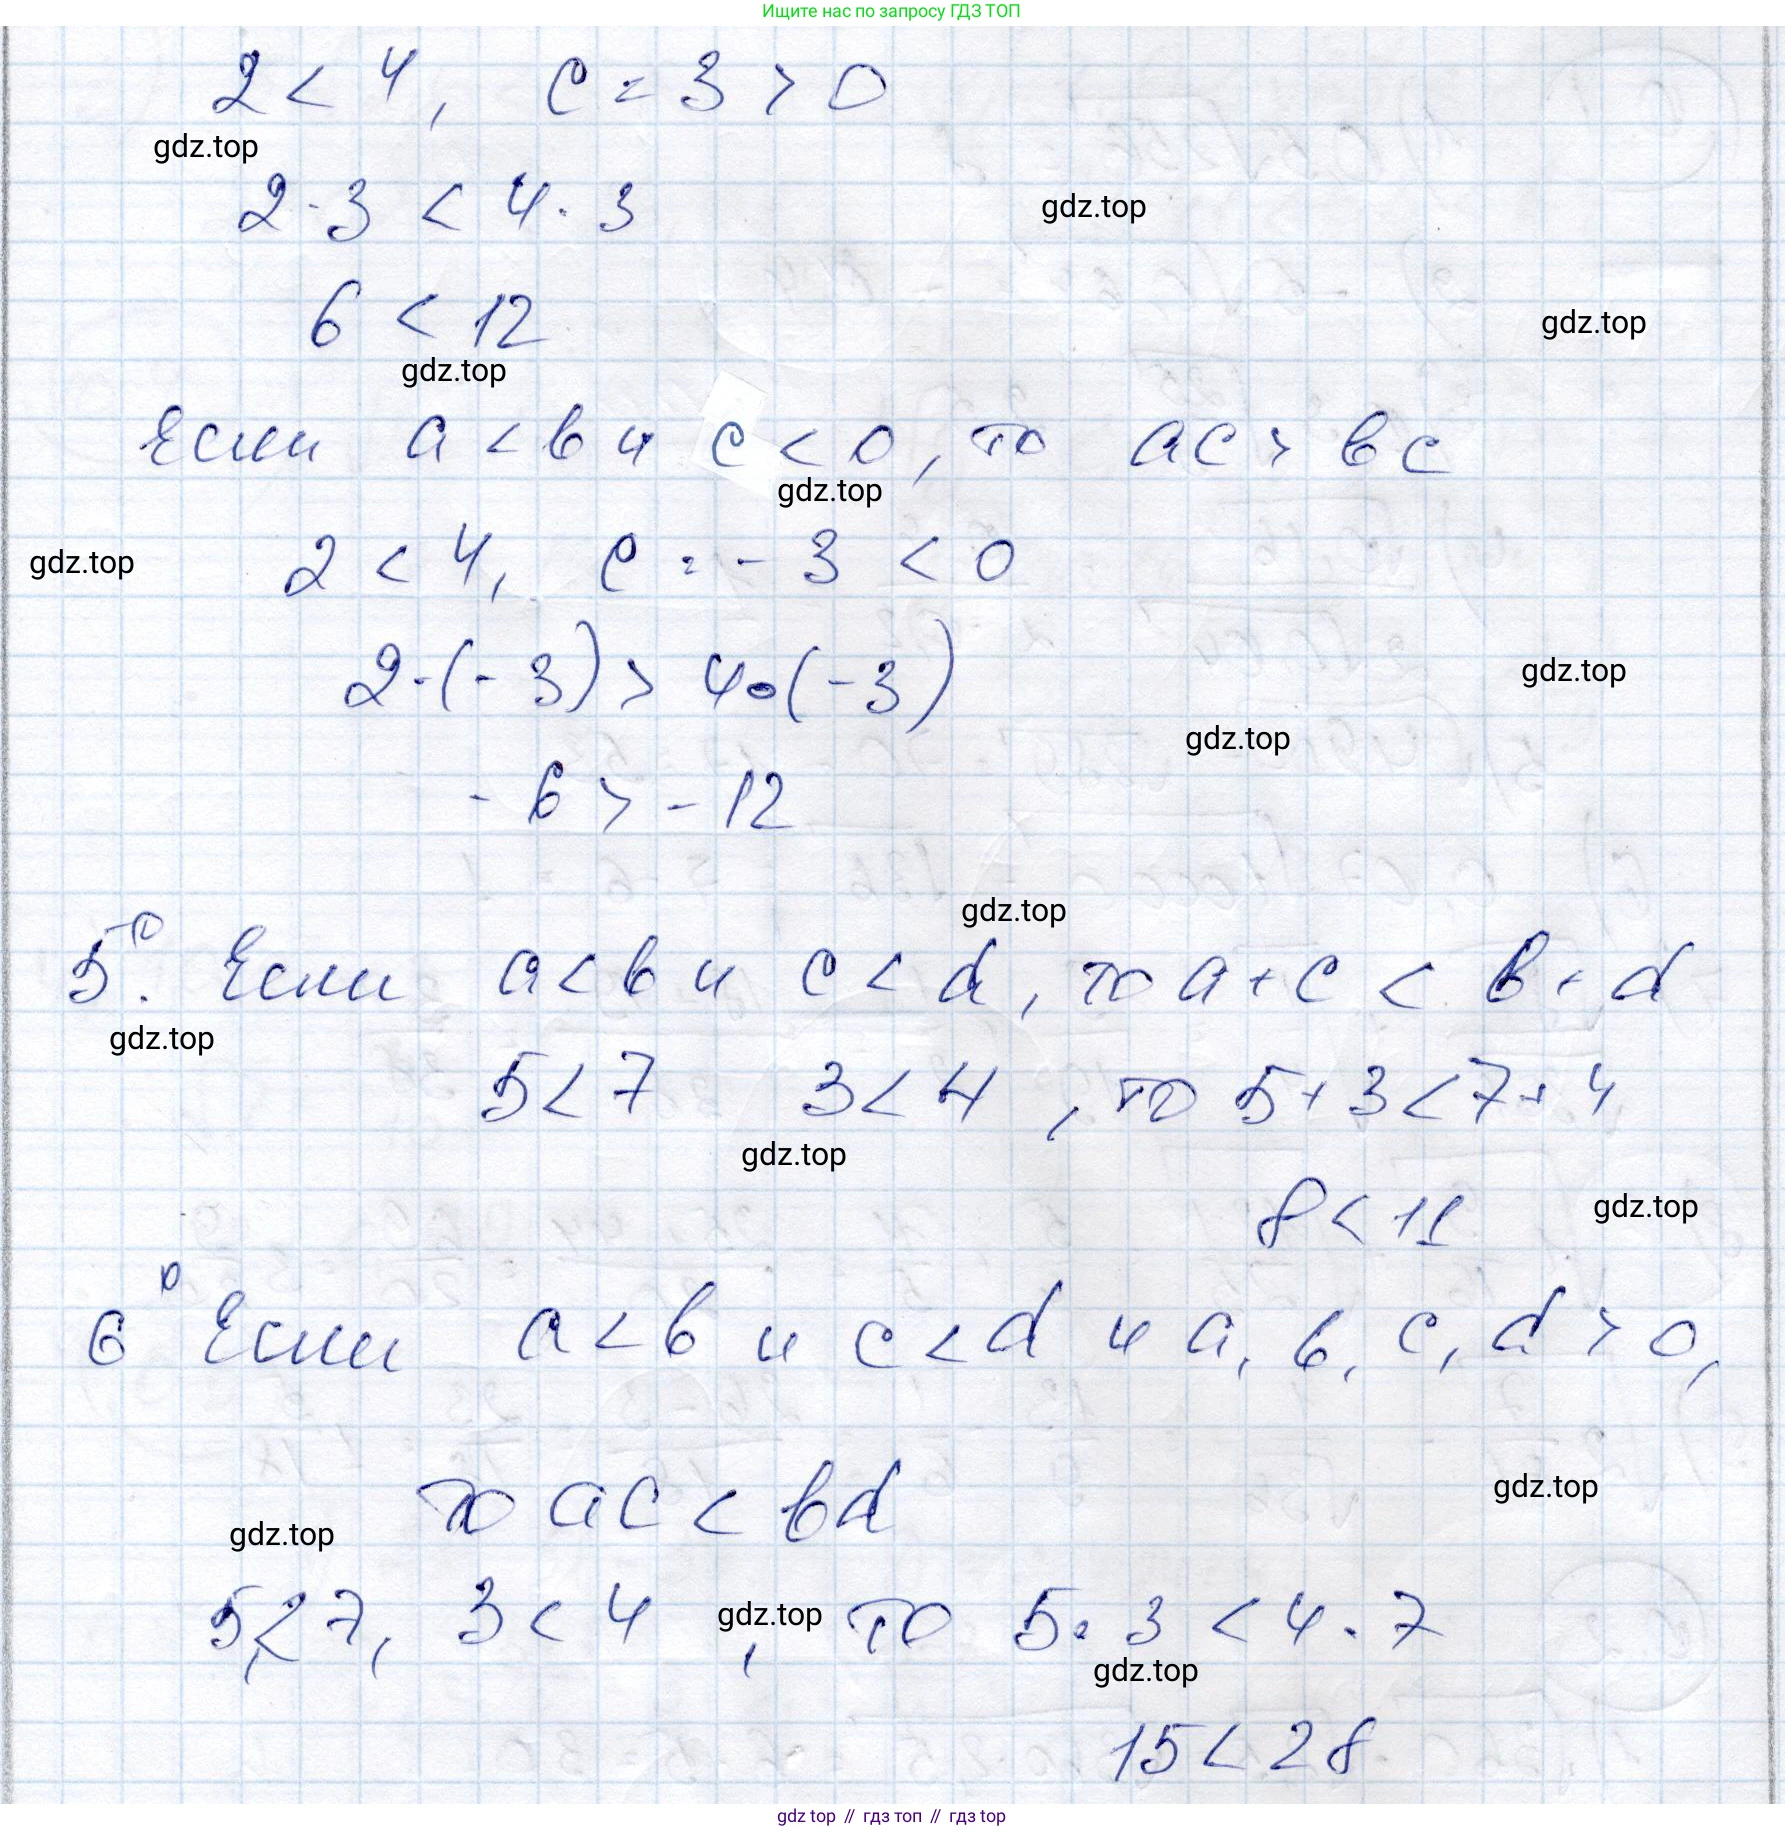 Ищите нас по запросу ГДЗ ТОП
2 < 4, c = 3 > 0
gdz.top
2 · 3 < 4 · 3
gdz.top
6 < 12
gdz.top
gdz.top
Если a < b и c < 0, то ac > bc
gdz.top
gdz.top
2 < 4, c = - 3 < 0
2 · (- 3) > 4 · (- 3)
gdz.top
gdz.top
- 6 > - 12
gdz.top
5⁰. Если a < b и c < d, то a + c < b + d
gdz.top
5 < 7 3 < 4, то 5 + 3 < 7 + 4
gdz.top
8 < 11
gdz.top
6⁰ Если a < b и c < d и a, b, c, d > 0,
gdz.top
то ac < bd
gdz.top
5 < 7, 3 < 4, то 5 · 3 < 4 · 7
gdz.top
gdz.top
15 < 28
gdz top // гдз топ // гдз top